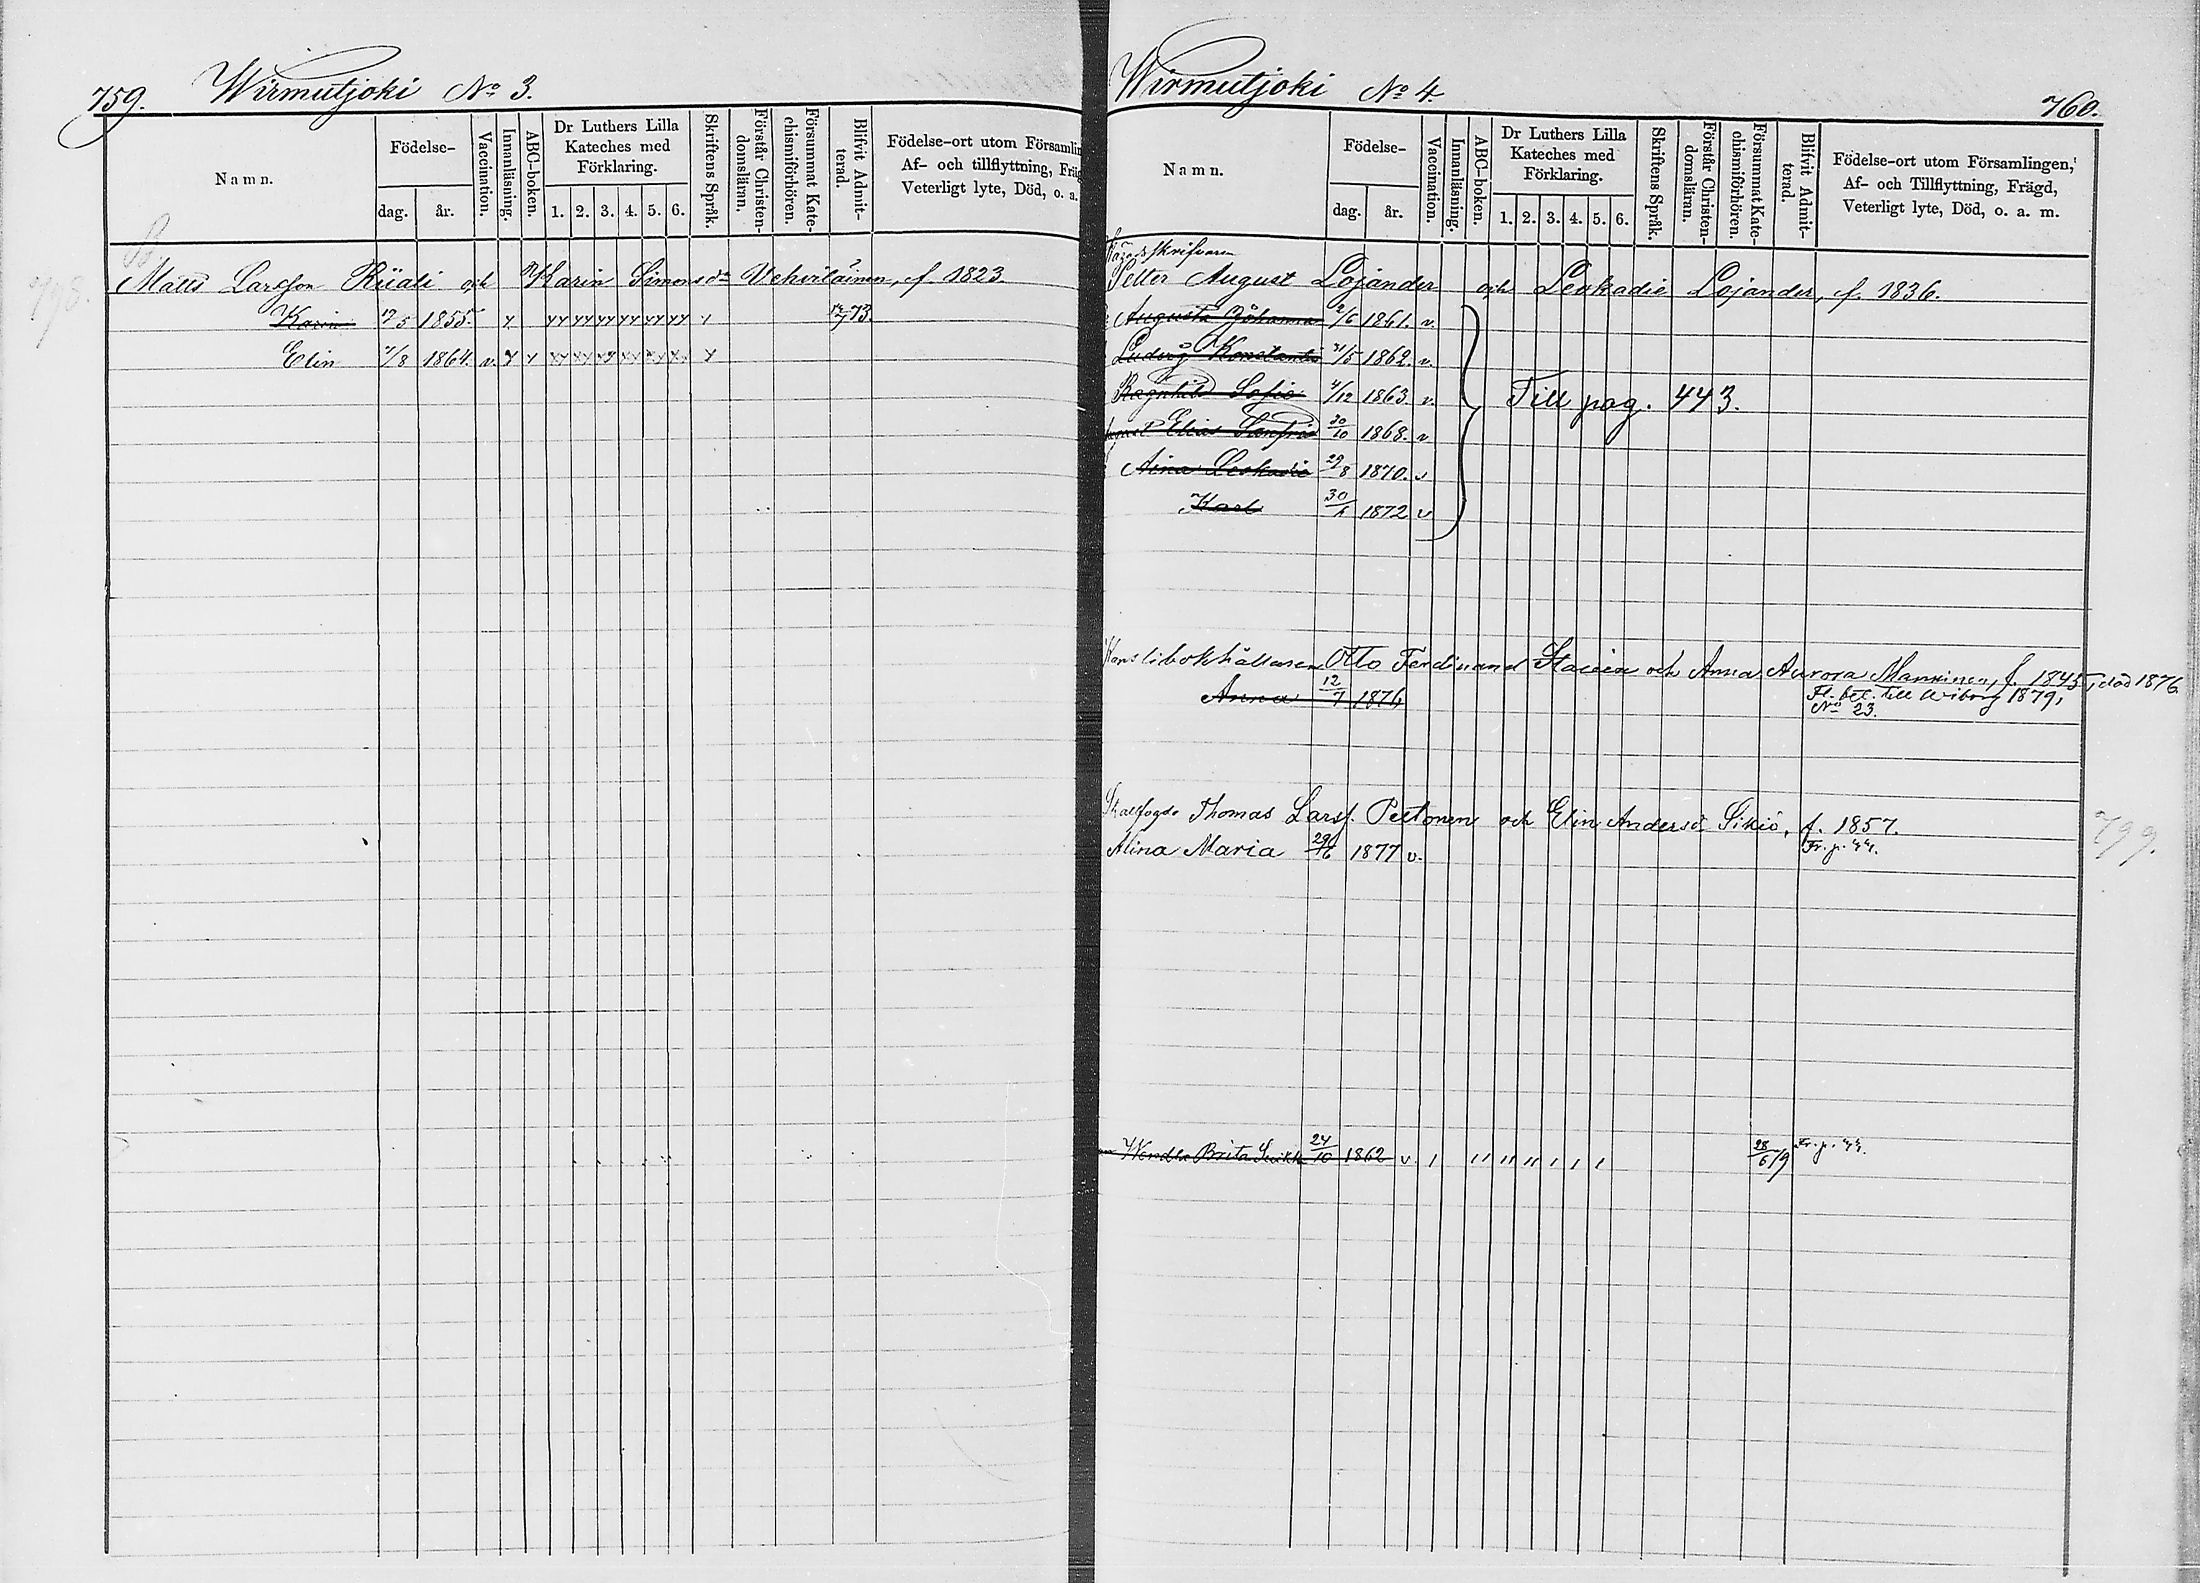 759. Wirmutjoki No 3.
Namn.
Födelse-
dag. år.
Vaccination.
Innanläsning.
ABC-boken.
Dr Luthers Lilla
Kateches med
Förklaring.
1. 2. 3. 4. 5. 6.
Skriftens Språk.
Förstår Christen-
domslärnn.
Försummat Kate-
chismiförhören.
Blifvit Admit-
terad.
Födelse-ort utom Församlin
Af- och tillflyttning, Fräg
Veterligt lyte, Död, o. a.
798.
Matts Larsson Riiali och Karin Simonsdr Vehviläinen, f. 1823.
Karin 19/5 1855.
Elin 7/8 1864. v.
Wirmutjoki No 4.
760.
Namn.
Födelse-
dag. år.
Vaccination.
Innanläsning.
ABC-boken.
Dr Luthers Lilla
Kateches med
Förklaring.
1. 2. 3. 4. 5. 6.
Skriftens Språk.
Förstår Christen-
domsläran.
Försummat Kate-
chismiförhören.
Blifvit Admit-
terad.
Födelse-ort utom Församlingen,
Af- och Tillflyttning, Frägd,
Veterligt lyte, Död, o. a. m.
Petter August Lojander och Leokadie Lojander, f. 1836.
Augusta Johanna 2/6 1861. v.
Ludvig Konstantin 31/5 1862. v.
Ragnhild Sofia 4/12 1863. v.
Till pag. 443.
Elias 30/10 1868. v
Aina Leokadia 29/8 1870. v
Karl 30/1 1872 v
Kanslibokhållaren Otto Ferdinand och Anna Aurora Manninen, f. 1845, död 1876
Anna 12/9 1876
Fl. bet. till Wiborg 1879,
No 23.
Thomas Larss. Peltonen och Elin Andersd. Sikiö, f. 1857.
Alina Maria 29/6 1877 v.
Fr. p. 44.
799.
Wendla Brita 24/10 1862 v
28/6 79
Fr. p. 44.